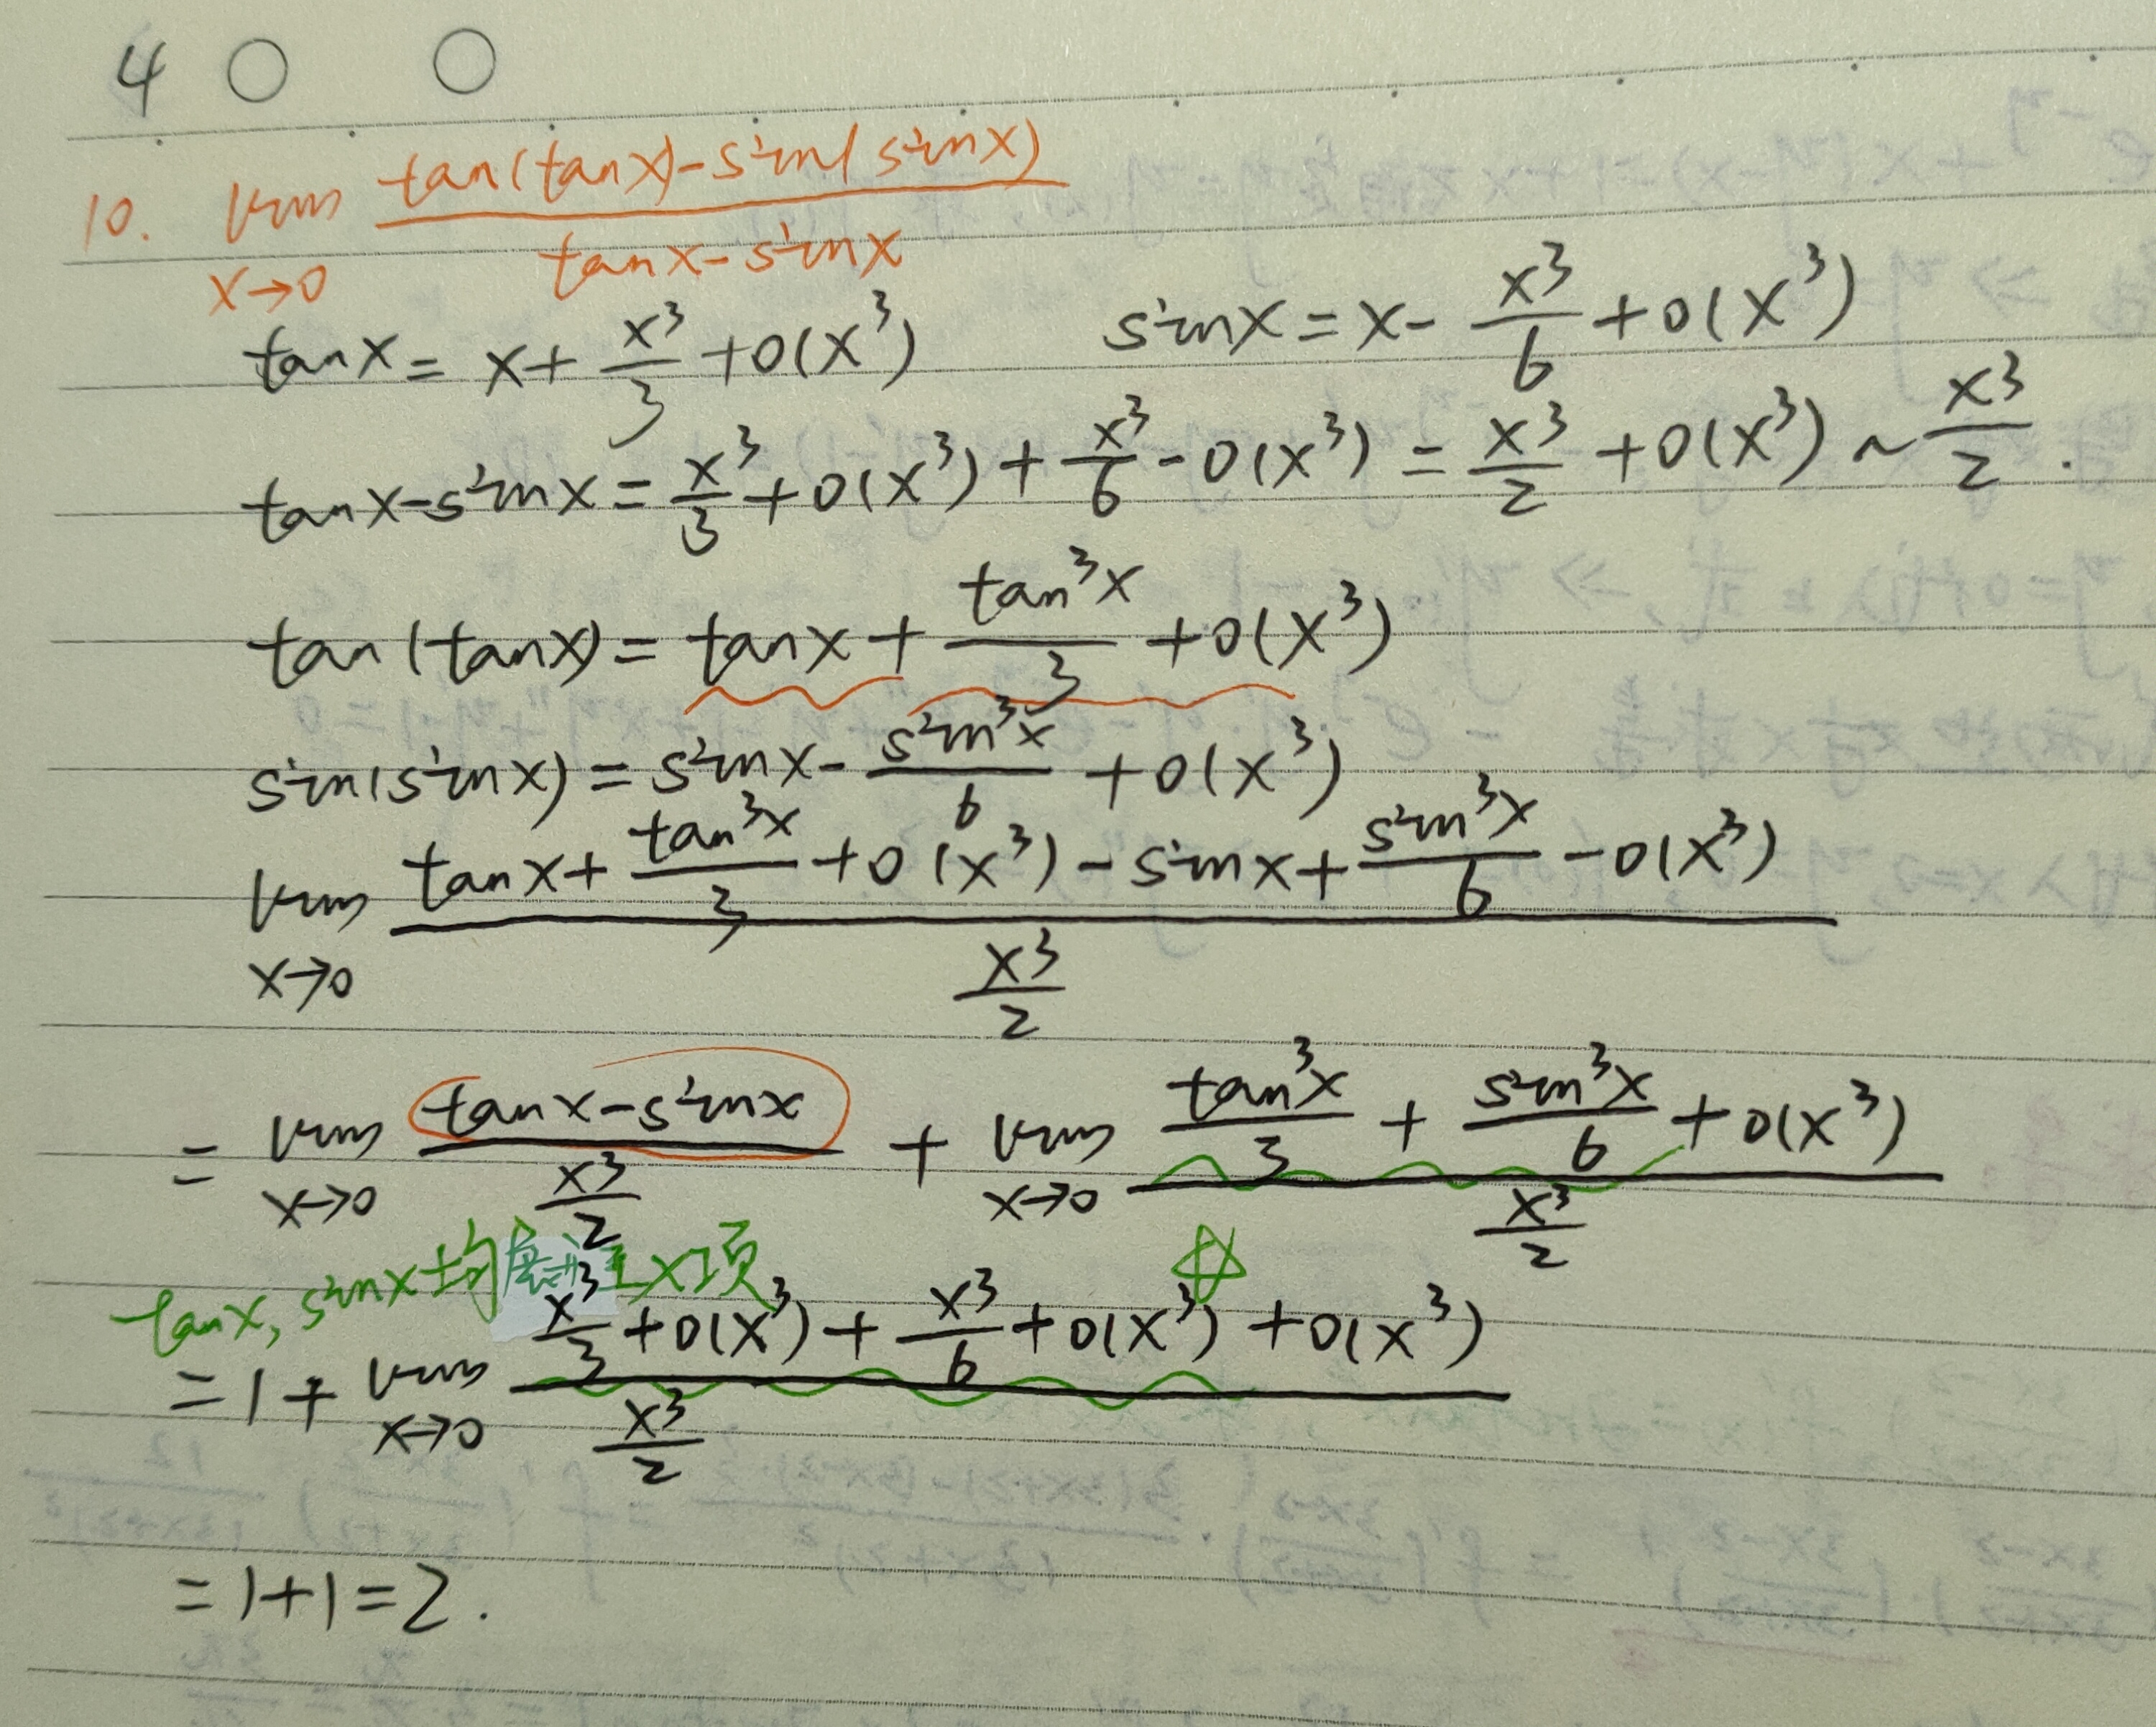 4 ○ ○
10. lim x→0 (tan(tanx)-sin(sinx))/(tanx-sinx)
tanx = x + x³/3 + o(x³)   sinx = x - x³/6 + o(x³)
tanx-sinx = x³/3 + o(x³) + x³/6 - o(x³) = x³/2 + o(x³) ~ x³/2.
tan(tanx) = tanx + tan³x/3 + o(x³)
sin(sinx) = sinx - sin³x/6 + o(x³)
lim x→0 (tanx + tan³x/3 + o(x³) - sinx + sin³x/6 - o(x³))/(x³/2)
= lim x→0 (tanx-sinx)/(x³/2) + lim x→0 (tan³x/3 + sin³x/6 + o(x³))/(x³/2)
tanx, sinx均展到x项 ☆
= 1 + lim x→0 (x³/3 + o(x³) + x³/6 + o(x³) + o(x³))/(x³/2)
= 1+1 = 2.